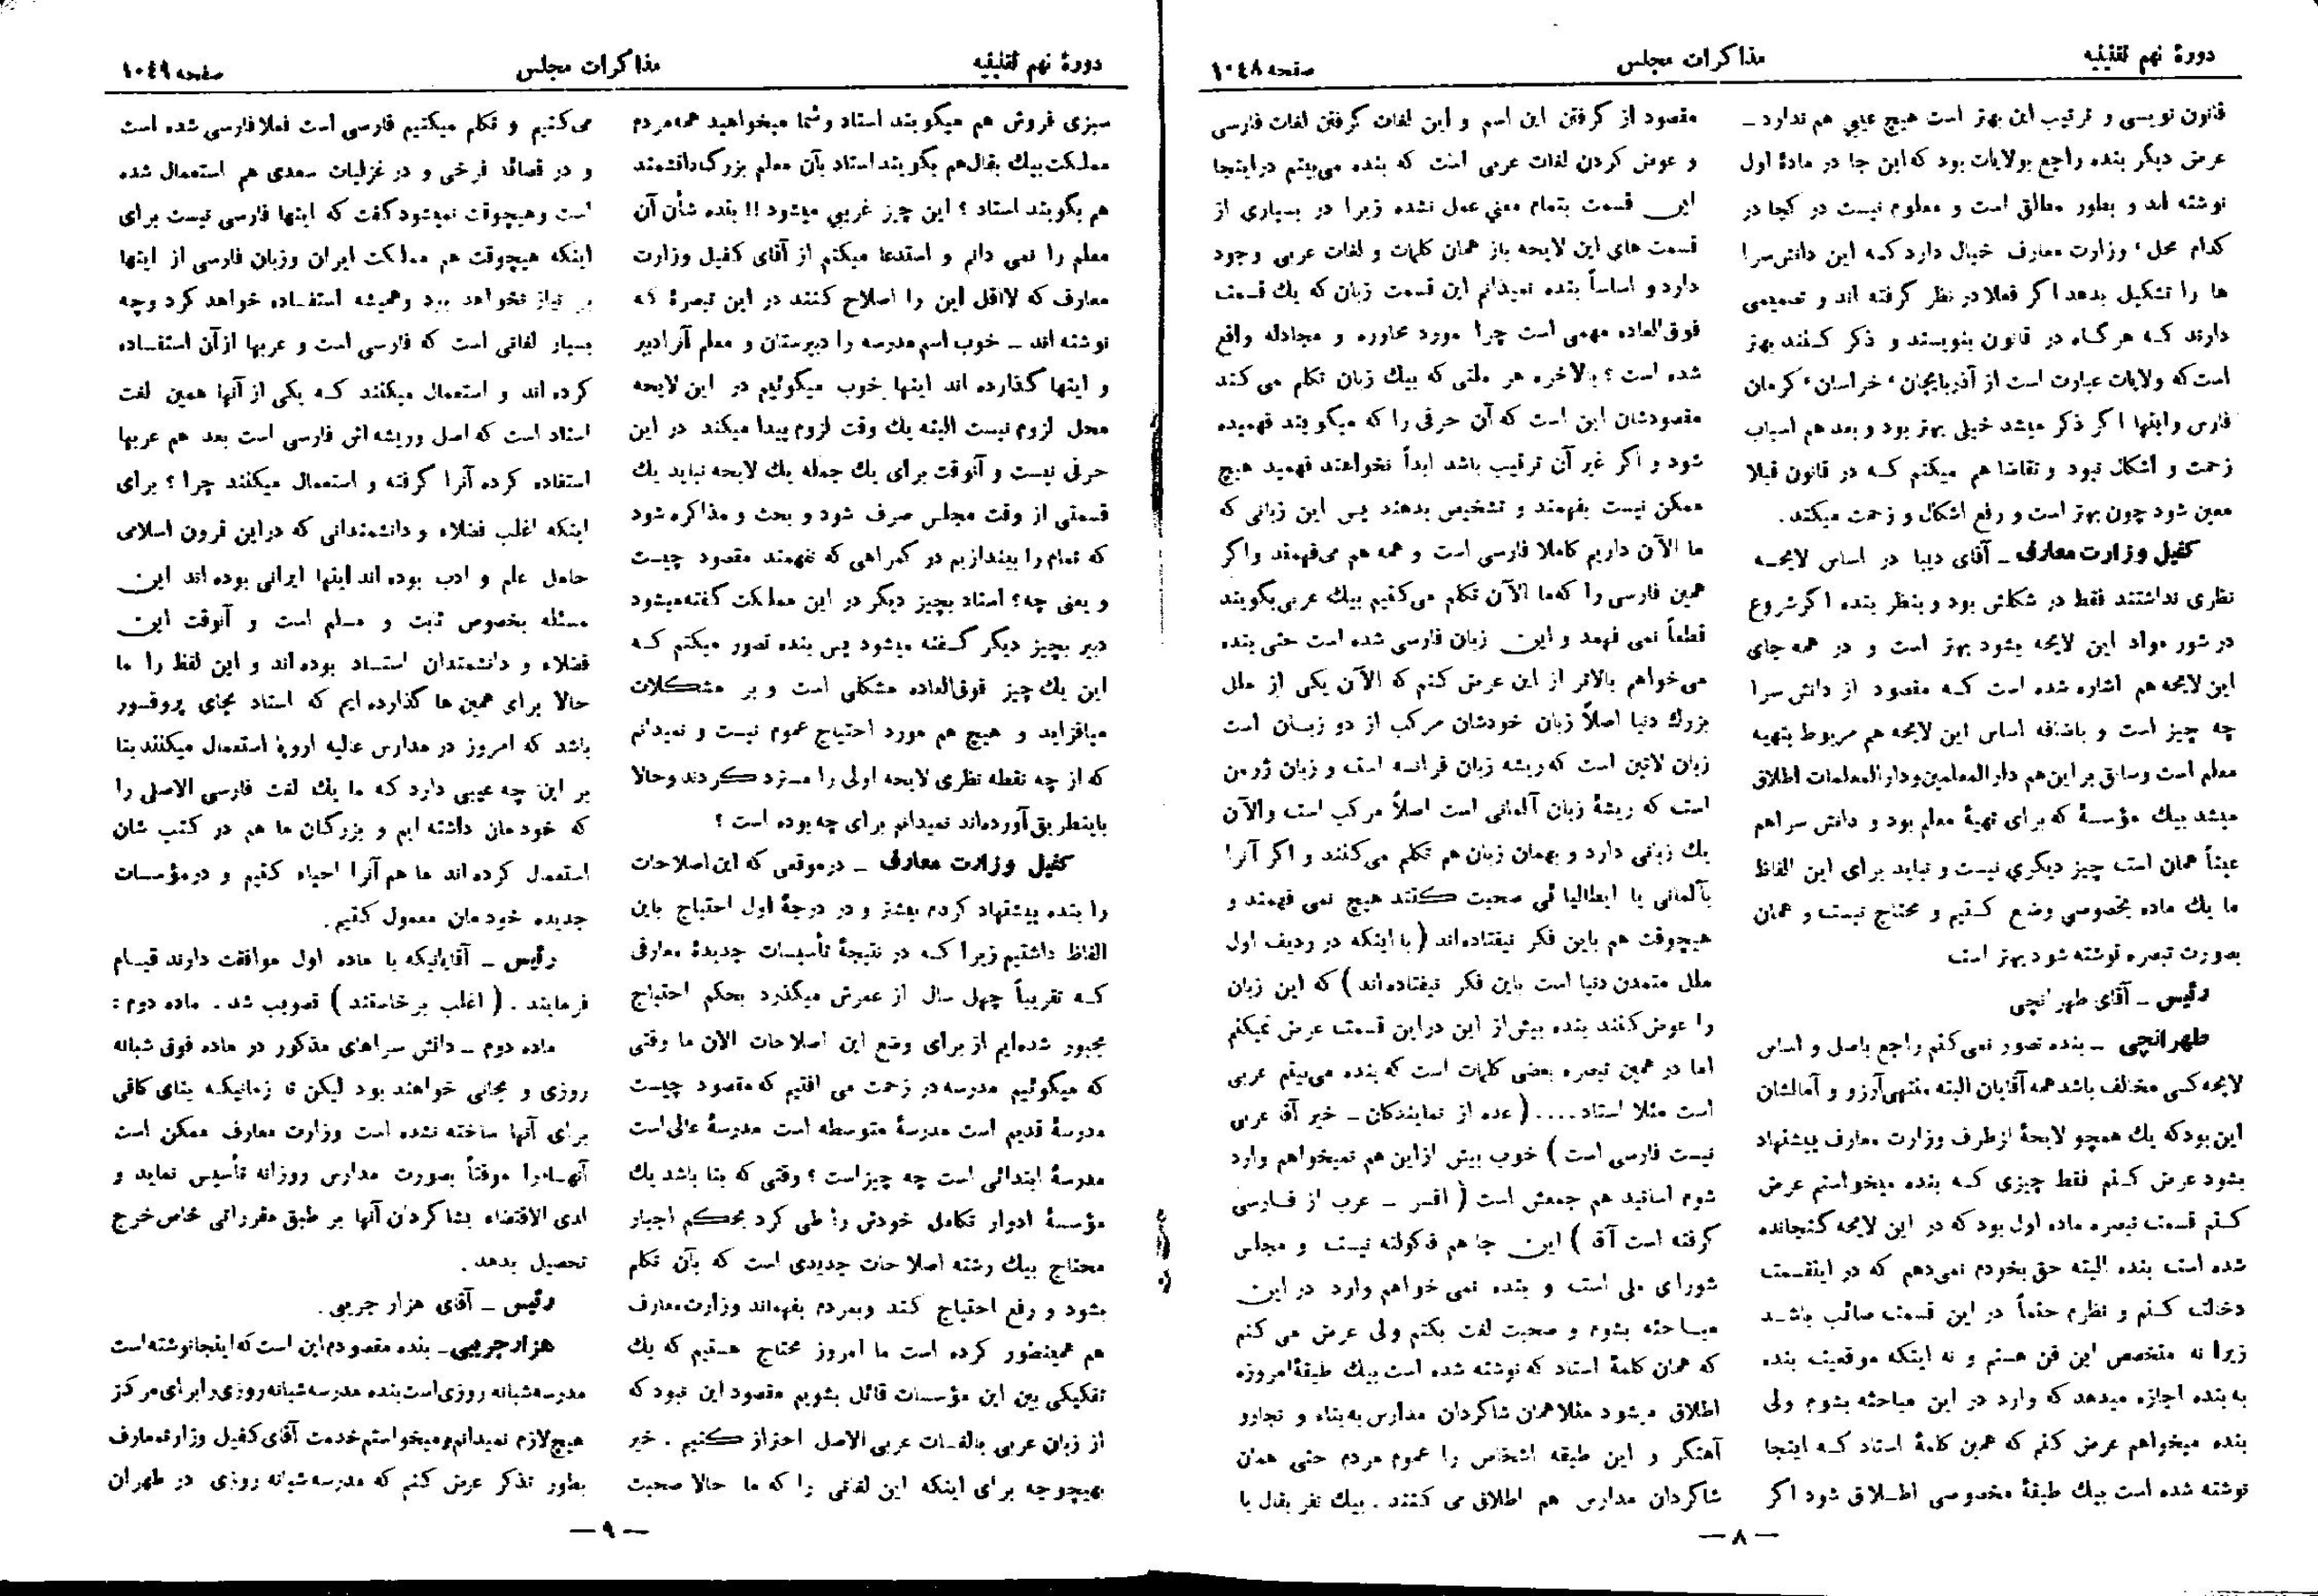 دورهٔ نهم تقنینیه
مذاکرات مجلس
صفحه ۱۰٤۸
قانون نویسی و ترتیب این بهتر است هیچ عیبی هم ندارد ـ
عرض دیگر بنده راجع بولایات بود که این جا در مادهٔ اول
نوشته اند و بطور مطلق است و معلوم نیست در کجا در
کدام محل، وزارت معارف خیال دارد کـه این دانش‌سرا
ها را تشکیل بدهد اگر فعلا در نظر گرفته اند و تصمیمی
دارند کـه هر گاه در قانون بنویسند و ذکر کـنند بهتر
است که ولایات عبارت است از آذربایجان، خراسان، کرمان
فارس و اینها اگر ذکر میشد خیلی بهتر بود و بعد هم اسباب
زحمت و اشکال نبود و تقاضا هم میکنم کـه در قانون قبلا
معین شود چون بهتر است و رفع اشکال و زحمت میکند.
کفیل وزارت معارف ـ آقای دیبا در اساس لایحـه
نظری نداشتند فقط در شکلش بود و بنظر بنده اگر شروع
در شور مواد این لایحه بشود بهتر است و در همه جای
این لایحه هم اشاره شده است کـه مقصود از دانش سرا
چه چیز است و باضافه اساس این لایحه هم مربوط بتهیه
معلم است و سابق بر این هم دارالمعلمین و دارالمعلمات اطلاق
میشد بیك مؤسسهٔ که برای تهیهٔ معلم بود و دانش سرا هم
عیناً همان است چیز دیگری نیست و نباید برای این الفاظ
ما یك ماده بخصوصی وضع کـنیم و محتاج نیست و همان
بصورت تبصره نوشته شود بهتر است
رئیس ـ آقای طهرانچی
طهرانچی ـ بنده تصور نمی کنم راجع باصل و اساس
لایحه کسی مخالف باشد همه آقایان البته منتهی آرزو و آمالشان
این بود که یك همچو لایحهٔ از طرف وزارت معارف پیشنهاد
بشود عرض کـنم فقط چیزی کـه بنده میخواستم عرض
کـنم قسمت تبصره ماده اول بود که در این لایحه گنجانده
شده است بنده البته حق بخودم نمی‌دهم که در اینقسمت
دخالت کـنم و نظرم حتماً در این قسمت صائب باشـد
زیرا نه متخصص این فن هستم و نه اینکه موقعیت بنده
به بنده اجازه میدهد که وارد در این مباحثه بشوم ولی
بنده میخواهم عرض کنم که همین کلمهٔ استاد کـه اینجا
نوشته شده است بیك طبقهٔ مخصوصی اطـلاق شود اگر
مقصود از گرفتن این اسم و این لغات گرفتن لغات فارسی
و عوض کردن لغات عربی است که بنده می‌بینم در اینجا
این قسمت بتمام معنی عمل نشده زیرا در بسیاری از
قسمت های این لایحه باز همان کلمات و لغات عربی وجود
دارد و اساساً بنده نمیدانم این قسمت زبان که یك قسمت
فوق‌العاده مهمی است چرا مورد محاوره و مجادله واقع
شده است؟ بالاخره هر ملتی که بیك زبان تکلم می کند
مقصودشان این است که آن حرفی را که میگویند فهمیده
شود و اگر غیر آن ترتیب باشد ابداً نخواهند فهمید هیچ
ممکن نیست بفهمند و تشخیص بدهند پس این زبانی که
ما الآن داریم کاملا فارسی است و همه هم می‌فهمند و اگر
همین فارسی را که ما الآن تکلم می‌کنیم بیك عربی بگویند
قطعاً نمی فهمد و این زبان فارسی شده است حتی بنده
می‌خواهم بالاتر از این عرض کنم که الآن یکی از ملل
بزرك دنیا اصلاً زبان خودشان مرکب از دو زبان است
زبان لاتین است که ریشه زبان فرانسه است و زبان ژرمن
است که ریشهٔ زبان آلمانی است اصلاً مرکب است و الآن
یك زبانی دارد و بهمان زبان هم تکلم می‌کنند و اگر آنرا
بآلمانی یا ایطالیائی صحبت کنند هیچ نمی فهمند و
هیچوقت هم باین فکر نیفتاده‌اند ( با اینکه در ردیف اول
ملل متمدن دنیا است باین فکر نیفتاده‌اند ) که این زبان
را عوض کنند بنده بیش از این در این قسمت عرض نمیکنم
اما در همین تبصره بعضی کلمات است که بنده می‌بینم عربی
است مثلا استاد.... ( عده از نمایندگان ـ خیر آقا عربی
نیست فارسی است ) خوب بیش از این هم نمیخواهم وارد
شوم اساتید هم جمعش است ( افسر ـ عرب از فـارسی
گرفته است آقا ) این جا هم فاکولته نیست و مجلس
شورای ملی است و بنده نمی خواهم وارد در این
مباحثه بشوم و صحبت لغت بکنم ولی عرض می کنم
که همان کلمهٔ استاد که نوشته شده است بیك طبقهٔ امروزه
اطلاق میشود مثلا همان شاگردان مدارس به بناء و نجار و
آهنگر و این طبقه اشخاص را عموم مردم حتی همان
شاگردان مدارس هم اطلاق می کنند . بیك نفر بقال یا
— ۸ —
دورهٔ نهم تقنینیه
مذاکرات مجلس
صفحه ۱۰٤۹
سبزی فروش هم میگویند استاد و شما میخواهید همه مردم
مملکت بیك بقال هم بگویند استاد بآن معلم بزرگ دانشمند
هم بگویند استاد؟ این چیز غریبی میشود!! بنده شأن آن
معلم را نمی دانم و استدعا میکنم از آقای کفیل وزارت
معارف که لااقل این را اصلاح کنند در این تبصرهٔ که
نوشته اند ـ خوب اسم مدرسه را دبیرستان و معلم آنرا دبیر
و اینها گذارده اند اینها خوب میگوئیم در این لایحه
محل لزوم نیست البته یك وقت لزوم پیدا میکند در این
حرفی نیست و آنوقت برای یك جمله یك لایحه نباید یك
قسمتی از وقت مجلس صرف شود و بحث و مذاکره شود
که تمام را بیندازیم در گمراهی که نفهمند مقصود چیست
و یعنی چه؟ استاد بچیز دیگر در این مملکت گفته میشود
دبیر بچیز دیگر گـفته میشود پس بنده تصور میکنم کـه
این یك چیز فوق‌العاده مشکلی است و بر مشکلات
میافزاید و هیچ هم مورد احتیاج عموم نیست و نمیدانم
که از چه نقطه نظری لایحه اولی را مسترد کردند و حالا
باینطریق آورده‌اند نمیدانم برای چه بوده است ؟
کفیل وزارت معارف ـ در موقعی که این اصلاحات
را بنده پیشنهاد کردم بیشتر و در درجهٔ اول احتیاج باین
الفاظ داشتیم زیرا کـه در نتیجهٔ تأسیسات جدیدهٔ معارفی
کـه تقریباً چهل سال از عمرش میگذرد بحکم احتیاج
مجبور شده‌ایم از برای وضع این اصلاحات الان ما وقتی
که میگوئیم مدرسه در زحمت می افتیم که مقصود چیست
مدرسهٔ قدیم است مدرسهٔ متوسطه است مدرسهٔ عالی است
مدرسهٔ ابتدائی است چه چیز است؟ وقتی که بنا باشد یك
مؤسسهٔ ادوار تکامل خودش را طی کرد بحکم اجبار
محتاج بیك رشته اصلاحات جدیدی است که بآن تکلم
بشود و رفع احتیاج کند و بمردم بفهماند وزارت معارف
هم همینطور کرده است ما امروز محتاج هستیم که یك
تفکیکی بین این مؤسسات قائل بشویم مقصود این نبود که
از زبان عربی یا لغـات عربی الاصل احتراز کنیم . خیر
بهیچوجه برای اینکه این لغاتی را که ما حالا صحبت
می‌کنیم و تکلم میکنیم فارسی است فعلا فارسی شده است
و در قصائد فرخی و در غزلیات سعدی هم استعمال شده
است و هیچوقت نمیشود گفت که اینها فارسی نیست برای
اینکه هیچوقت هم مملکت ایران و زبان فارسی از اینها
بی نیاز نخواهد بود و همیشه استفـاده خواهد کرد و چه
بسیار لغاتی است که فارسی است و عربها از آن استفـاده
کرده اند و استعمال میکنند کـه یکی از آنها همین لغت
استاد است که اصل و ریشه اش فارسی است بعد هم عربها
استفاده کرده آنرا گرفته و استعمال میکنند چرا؟ برای
اینکه اغلب فضلاء و دانشمندانی که در این قرون اسلامی
حامل علم و ادب بوده اند اینها ایرانی بوده اند این
مسئله بخصوص ثابت و مسلم است و آنوقت این
فضلاء و دانشمندان استـاد بوده اند و این لفظ را ما
حالا برای همین ها گذارده ایم که استاد بجای پروفسور
باشد که امروز در مدارس عالیه اروپا استعمال میکنند بنا
بر این چه عیبی دارد که ما یك لغت فارسی الاصلی را
که خودمان داشته ایم و بزرگان ما هم در کتب شان
استعمال کرده اند ما هم آنرا احیاء کنیم و در مؤسسات
جدیده خودمان معمول کنیم.
رئیس ـ آقایانیکه با ماده اول موافقت دارند قیـام
فرمایند . ( اغلب برخاستند ) تصویب شد . ماده دوم :
ماده دوم ـ دانش سراهای مذکور در ماده فوق شبانه
روزی و مجانی خواهند بود لیکن تا زمانیکـه بنای کافی
برای آنها ساخته نشده است وزارت معارف ممکن است
آنهـا را موقتاً بصورت مدارس روزانه تأسیس نماید و
لدی الاقتضاء بشاگردان آنها بر طبق مقرراتی خاص خرج
تحصیل بدهد .
رئیس ـ آقای هزار جریبی .
هزارجریبی ـ بنده مقصودم این است که اینجا نوشته است
مدرسه شبانه روزی است بنده مدرسه شبانه روزی را برای مرکز
هیچ لازم نمیدانم و میخواستم خدمت آقای کفیل وزارت معارف
بطور تذکر عرض کنم که مدرسه شبانه روزی در طهران
— ۹ —